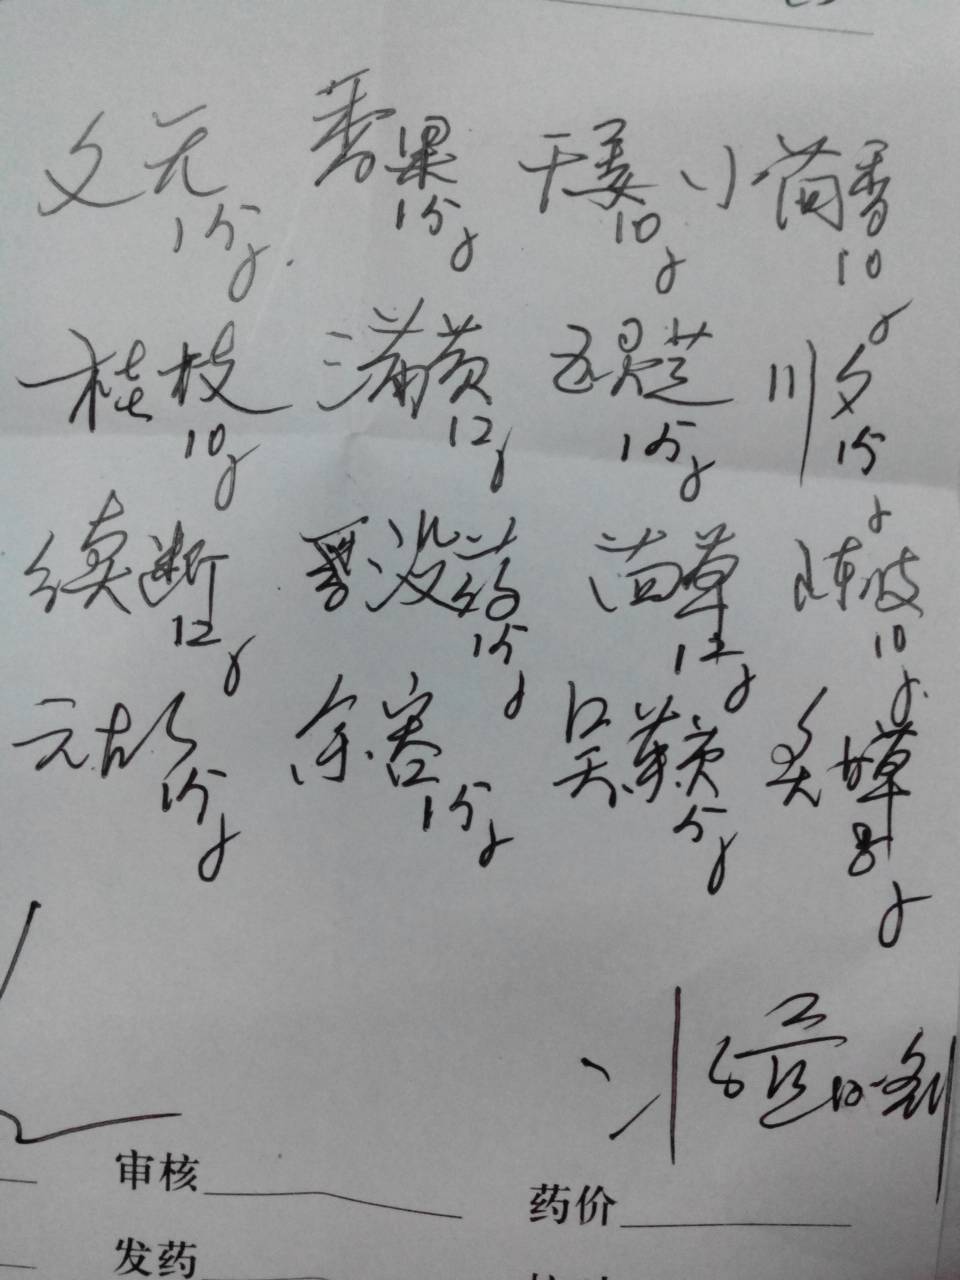 文元15g 香果15g 干姜10g 小茴香10g
桂枝10g 蒲黄12g 五灵芝15g 川夕15g
续断12g 没药15g 茜草12g 陈皮10g
元胡15g 余容15g 吴萸5g 炙草8g
审核 药价
发药